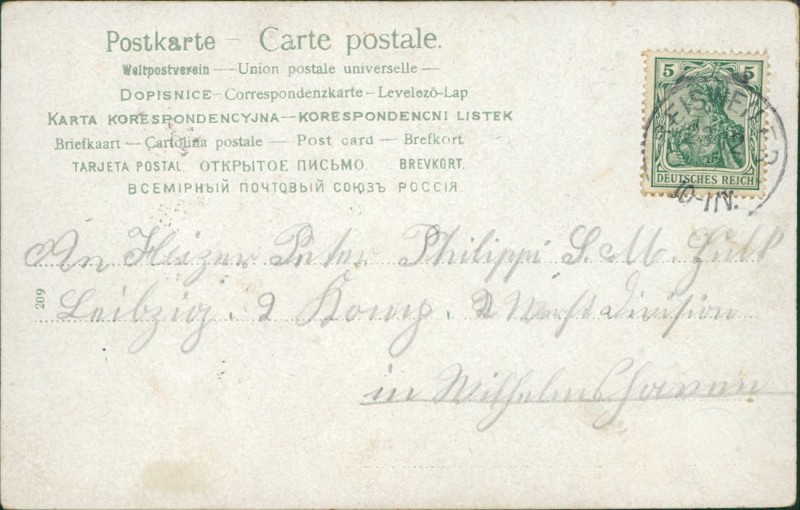 Postkarte – Carte postale.
Weltpostverein — Union postale universelle —
DOPISNICE – Correspondenzkarte – Levelező-Lap
KARTA KORESPONDENCYJNA — KORESPONDENCNI LISTEK
Briefkaart — Cartolina postale — Post card — Brefkort
TARJETA POSTAL. ОТКРЫТОЕ ПИСЬМО. BREVKORT.
ВСЕМІРНЫЙ ПОЧТОВЫЙ СОЮЗЪ РОССІЯ.
5 5
DEUTSCHES REICH
10-11V.
An Heizer Peter Philippi S. M.
Leibzig. 2 Komp. 2 Werft Division
in Wilhelmshaven
209